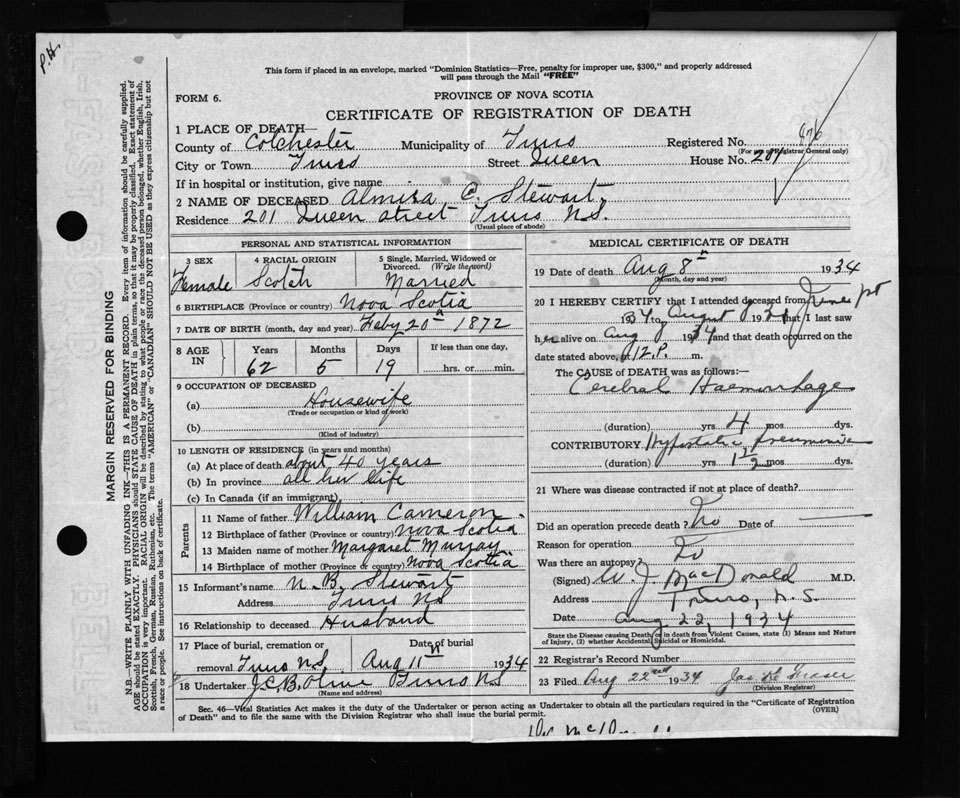 P.H.
This form if placed in an envelope, marked "Dominion Statistics—Free, penalty for improper use, $300," and properly addressed
will pass through the Mail "FREE"
FORM 6.
PROVINCE OF NOVA SCOTIA
CERTIFICATE OF REGISTRATION OF DEATH
1 PLACE OF DEATH—
County of Colchester Municipality of Truro Registered No.
(For use of Registrar General only)
City or Town Truro Street Queen House No. 201
If in hospital or institution, give name
2 NAME OF DECEASED Almira C. Stewart
Residence 201 Queen Street Truro N.S.
(Usual place of abode)
PERSONAL AND STATISTICAL INFORMATION
3 SEX 4 RACIAL ORIGIN 5 Single, Married, Widowed or
Divorced. (Write the word)
Female Scotch Married
6 BIRTHPLACE (Province or country) Nova Scotia
7 DATE OF BIRTH (month, day and year) Feby 20th 1872
8 AGE IN Years Months Days If less than one day,
62 5 19 hrs. or min.
9 OCCUPATION OF DECEASED
(a) Housewife
(Trade or occupation or kind of work)
(b)
(Kind of industry)
10 LENGTH OF RESIDENCE (in years and months)
(a) At place of death about 40 years
(b) In province all her life
(c) In Canada (if an immigrant)
Parents
11 Name of father William Cameron
12 Birthplace of father (Province or country) Nova Scotia
13 Maiden name of mother Margaret Murray
14 Birthplace of mother (Province or country) Nova Scotia
15 Informant's name N. B. Stewart
Address Truro NS
16 Relationship to deceased Husband
17 Place of burial, cremation or Date of burial
removal Truro N.S. Aug 11th 1934
18 Undertaker Truro NS
(Name and address)
MEDICAL CERTIFICATE OF DEATH
19 Date of death Aug 8th 1934
(Month, day and year)
20 I HEREBY CERTIFY that I attended deceased from June
1934 to August 8 19 that I last saw
her alive on Aug 8 1934 and that death occurred on the
date stated above, at 12 P. m.
The CAUSE OF DEATH was as follows:—
Cerebral Haemorrhage
(duration) yrs 4 mos dys.
CONTRIBUTORY Hypostatic pneumonia
(duration) yrs 1 1/2 mos dys.
21 Where was disease contracted if not at place of death?
Did an operation precede death? No Date of
Reason for operation
Was there an autopsy? No
(Signed) W. J. MacDonald M.D.
Address Truro, N.S.
Date Aug 22, 1934
State the Disease causing Death, or in death from Violent Causes, state (1) Means and Nature
of Injury, (2) whether Accidental, Suicidal or Homicidal.
22 Registrar's Record Number
23 Filed Aug 22nd 1934 Jas
(Division Registrar)
Sec. 46—Vital Statistics Act makes it the duty of the Undertaker or person acting as Undertaker to obtain all the particulars required in the "Certificate of Registration
of Death" and to file the same with the Division Registrar who shall issue the burial permit. (OVER)
MARGIN RESERVED FOR BINDING
N.B.—WRITE PLAINLY WITH UNFADING INK—THIS IS A PERMANENT RECORD. Every item of information should be carefully supplied.
AGE should be stated EXACTLY. PHYSICIANS should STATE CAUSE OF DEATH in plain terms, so that it may be properly classified. Exact statement of
OCCUPATION is very important. RACIAL ORIGIN will be described by stating to what people or race the deceased person belonged, whether English, Irish,
Scottish, French, German, Russian, Ruthenian, etc. The terms "AMERICAN" or "CANADIAN" SHOULD NOT BE USED as they express citizenship but not
a race or people. See instructions on back of certificate.